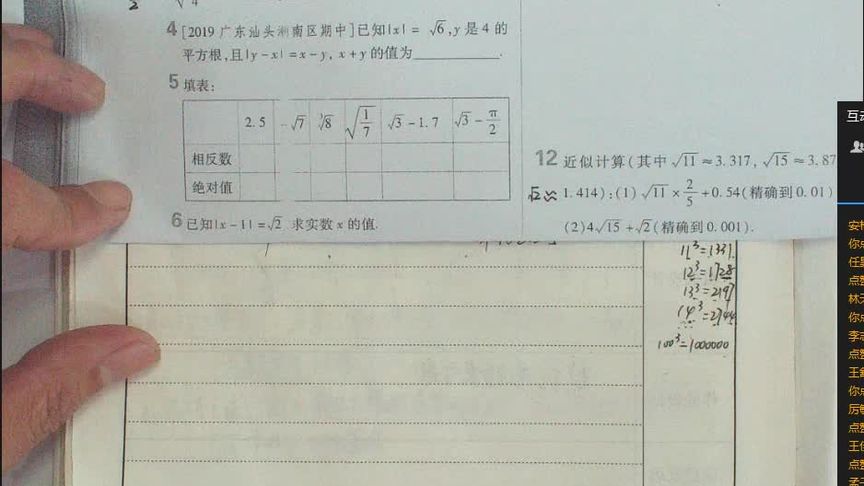 2
√4
4 [2019 广东汕头潮南区期中]已知|x| = √6,y 是 4 的
平方根,且|y−x| =x−y, x+y 的值为________.
5 填表:
2.5 −√7 ∛8 √(1/7) √3−1.7 √3−π/2
相反数
绝对值
6 已知|x−1|=√2 求实数 x 的值.
12 近似计算(其中 √11 ≈3.317, √15 ≈3.87
√2≈ 1.414):(1) √11 × 2/5 +0.54(精确到 0.01)
(2)4√15 +√2(精确到 0.001).
11³=1331.
12³=1728
13³=2197
14³=2744
100³=1000000
互动
安
你点
任
点赞
林
你点
李
点赞
王
你点
厉
点赞
王
点赞
孟